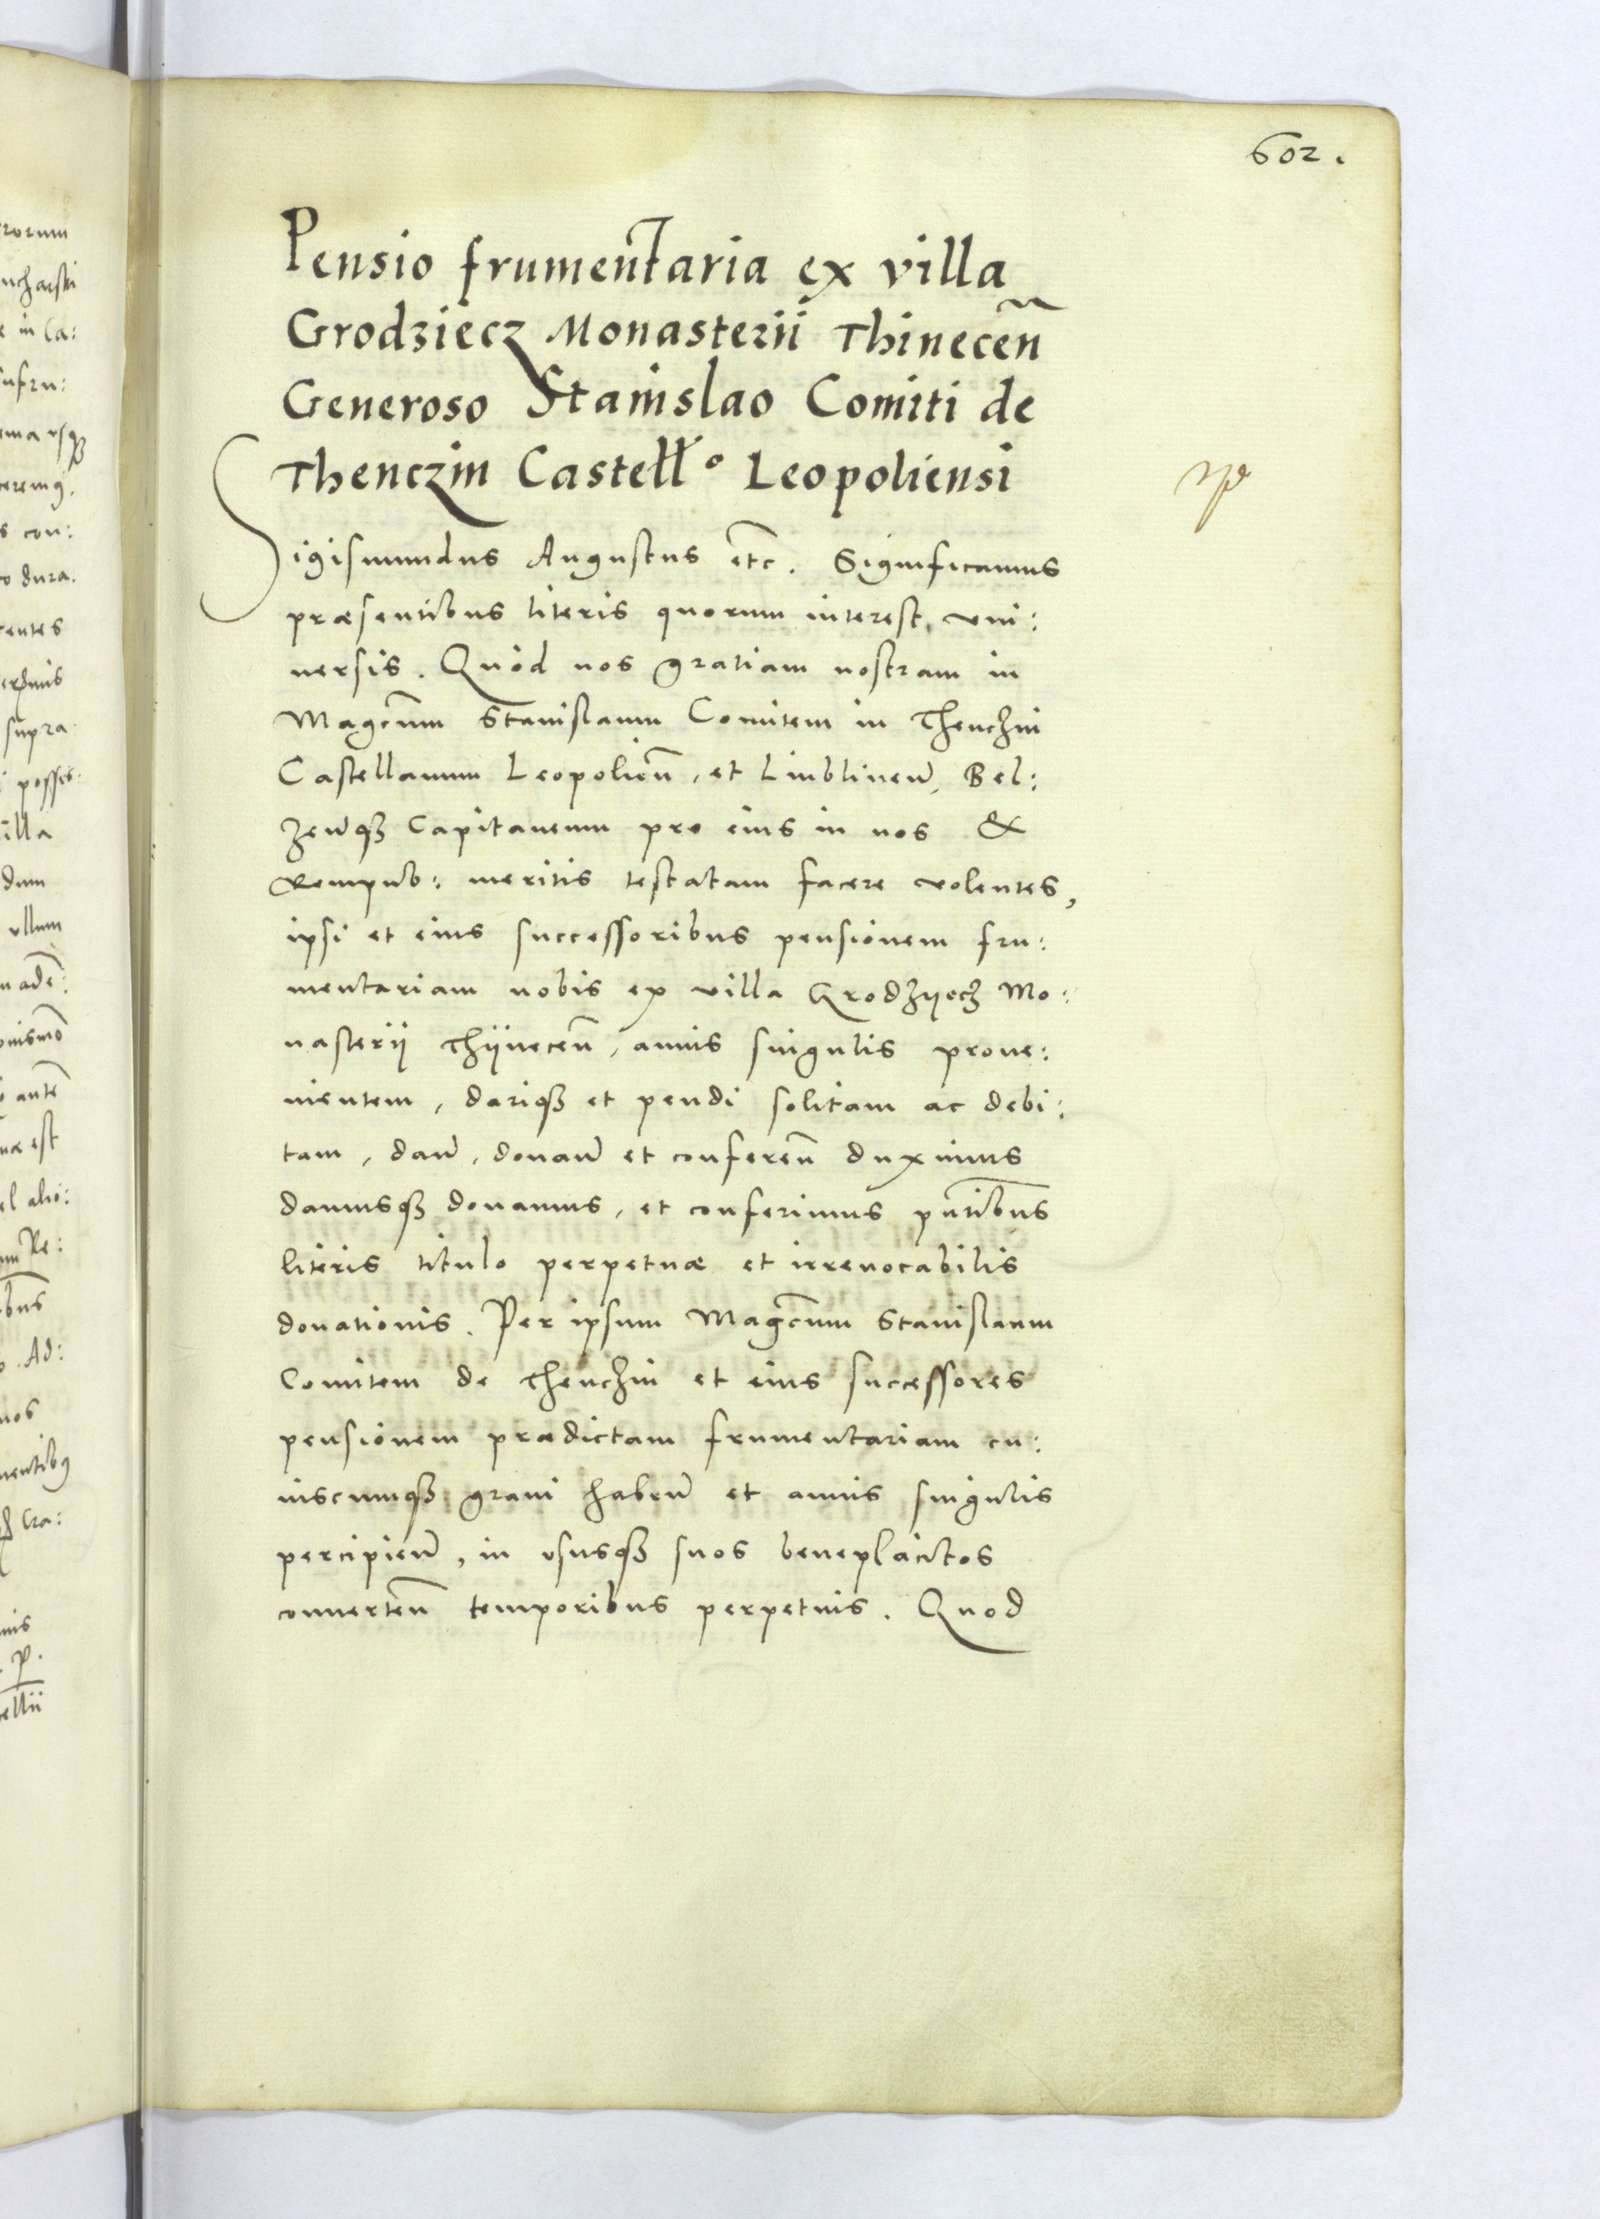 602.
Pensio frumentaria ex villa
Grodziecz Monasterii Thinecen̄
Generoso Stanislao Comiti de
Thenczin Castell̄º Leopoliensi
Sigismundus Augustus etc̄. Significamus
præsentibus literis quorum interest, vni:
uersis. Quòd nos gratiam nostram in
Magcūm Stanislaum Comitem in Thenczin
Castellanum Leopolien̄, et Lublinen̄, Bel:
zen̄qȝ Capitaneum pro eius in nos &
Rempub: meritis testatam facere volentes,
ipsi et eius successoribus pensionem fru:
mentariam nobis ex villa Grodzyecz Mo:
nasterij Thijnecen̄, annis singulis proue:
nientem, dariqȝ et pendi solitam ac debi:
tam, dan̄, donan̄ et conferen̄ duximus
damusqȝ donamus, et conferimus pn̄tibus
literis titulo perpetuæ et irreuocabilis
donationis. Per ipsum Magcūm Stanislaum
Comitem de Thenczin et eius successores
pensionem prædictam frumentariam cu:
iuscumqȝ grani haben̄ et annis singulis
percipien̄, in vsusqȝ suos beneplacitos
conuerten̄ temporibus perpetuis. Quod